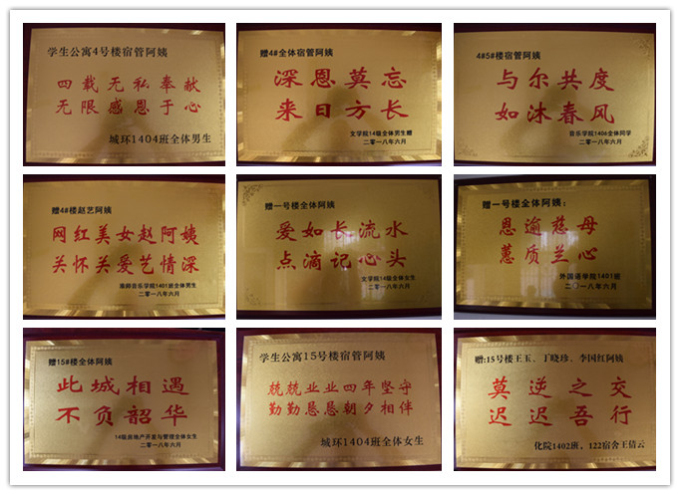 学生公寓4号楼宿管阿姨
四载无私奉献
无限感恩于心
城环1404班全体男生
赠4#全体宿管阿姨
深恩莫忘
来日方长
文学院14级全体男生赠
二零一八年六月
4#5#楼宿管阿姨
与尔共度
如沐春风
音乐学院1408全体同学
二零一八年六月
赠4#楼赵艺阿姨
网红美女赵阿姨
关怀关爱艺情深
音乐学院1401班全体男生
二零一八年六月
赠一号楼全体阿姨
爱如长流水
点滴记心头
文学院14级全体女生
二零一八年六月
赠一号楼全体阿姨：
恩逾慈母
蕙质兰心
外国语学院1401班
二零一八年六月
赠15#楼全体阿姨
此城相遇
不负韶华
14级房地产开发与管理全体女生
二零一八年六月
学生公寓15号楼宿管阿姨
兢兢业业四年坚守
勤勤恳恳朝夕相伴
城环1404班全体女生
赠:15号楼王玉、丁晓珍、李国红阿姨
莫逆之交
迟迟吾行
化院1402班，122宿舍王倩云